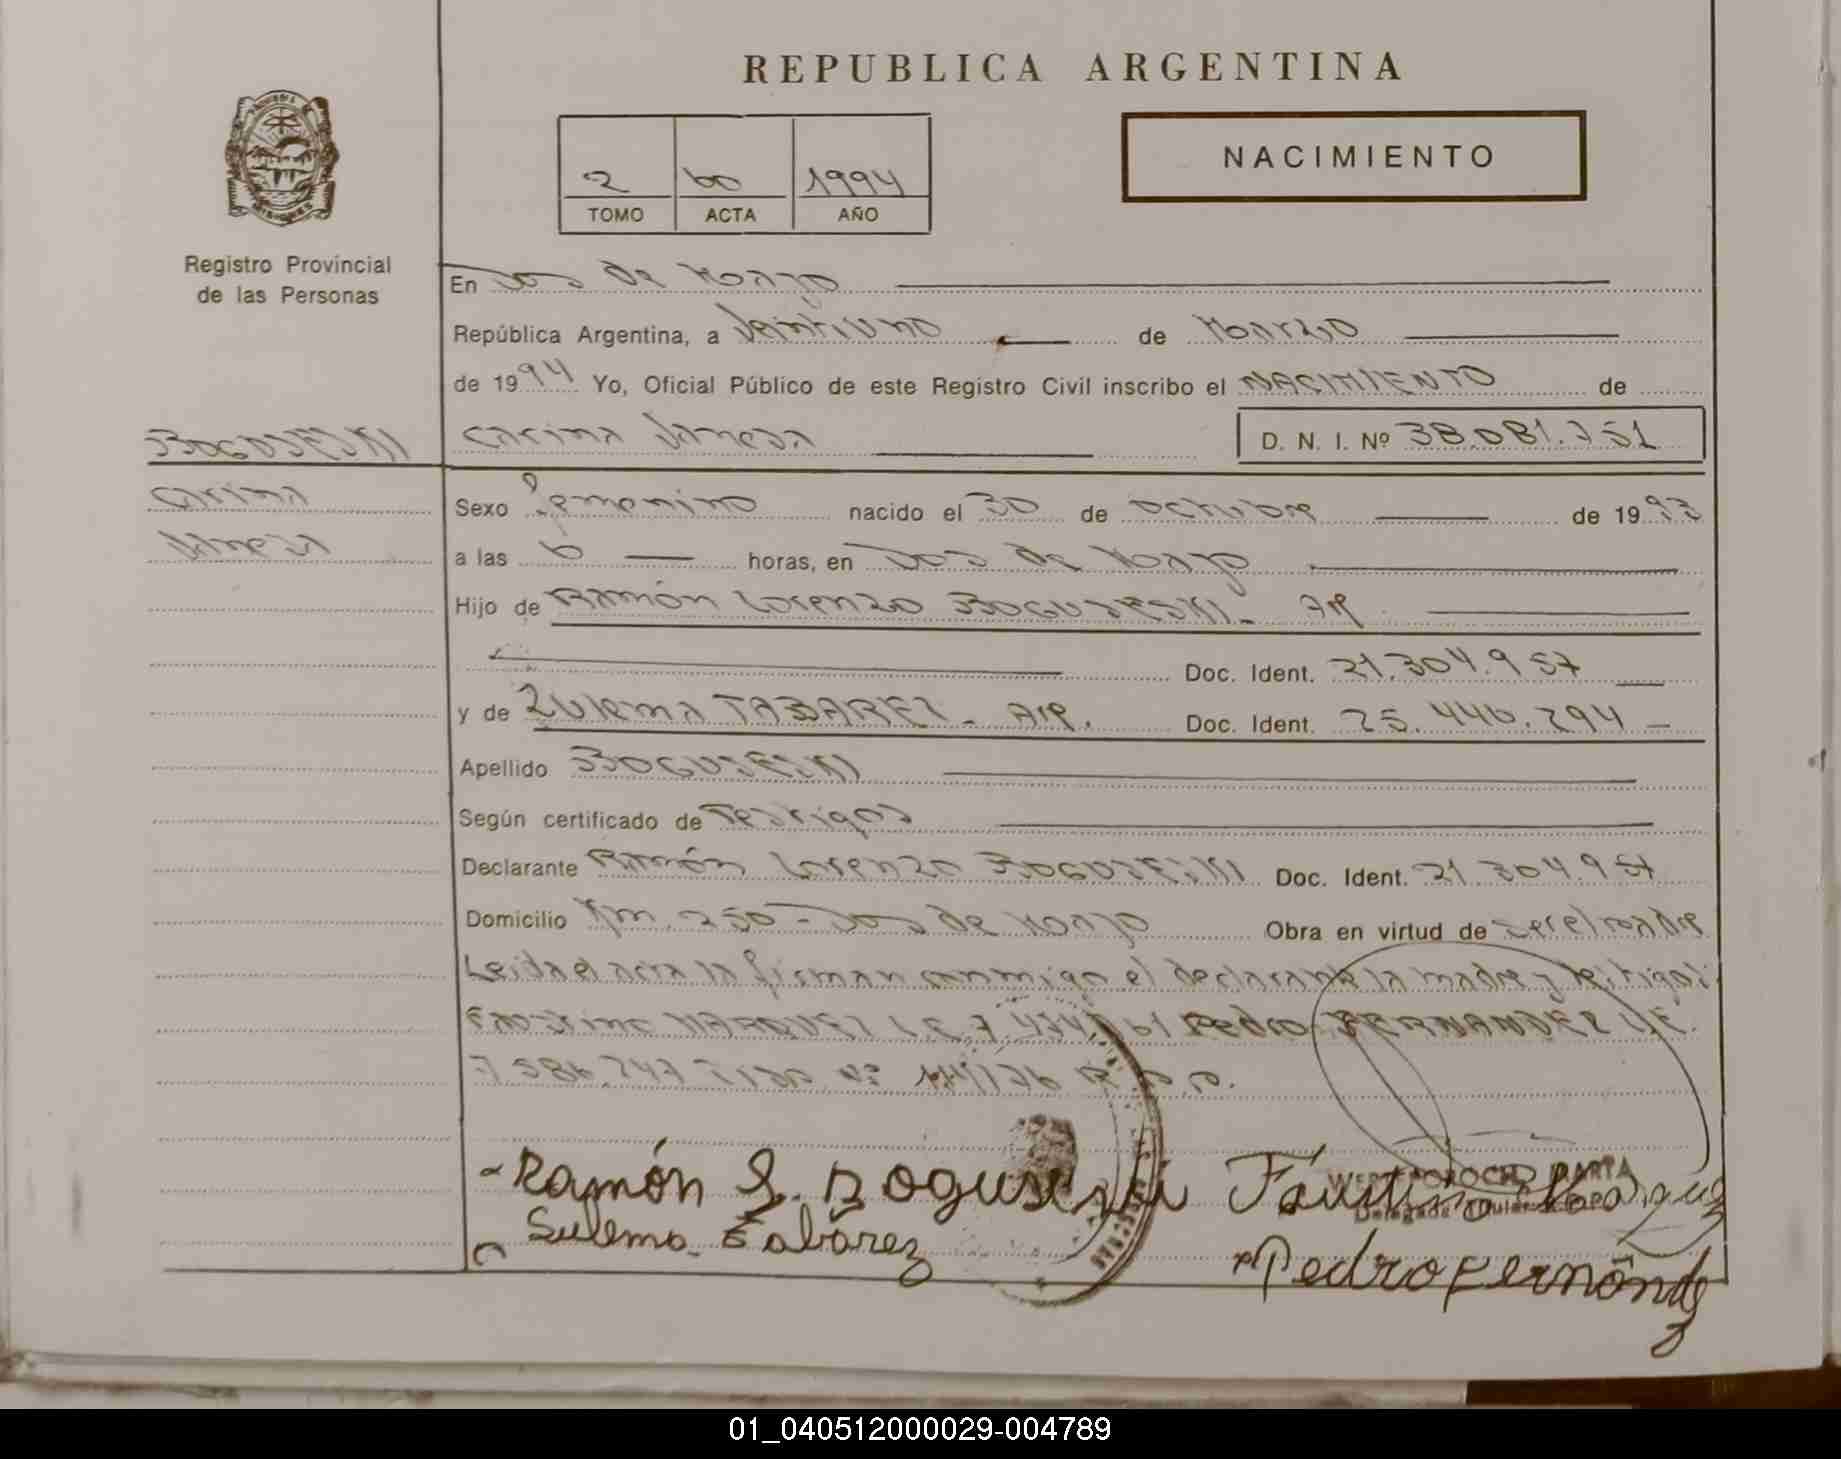 REPUBLICA ARGENTINA
NACIMIENTO
2 60 1994
TOMO ACTA AÑO
Registro Provincial
de las Personas
En Dos de Mayo
República Argentina, a Veintiuno de Marzo
de 1994 Yo, Oficial Público de este Registro Civil inscribo el NACIMIENTO de
BOGUSESKI
Carina Vanesa
D. N. I. Nº 38.081.751
Carina
Vanesa
Sexo femenino nacido el 30 de octubre de 1993
a las 6 horas, en Dos de Mayo
Hijo de Ramón Lorenzo BOGUSESKI - Arg
Doc. Ident. 21.304.957
y de Zulema TABAREZ - Arg. Doc. Ident. 25.446.294
Apellido BOGUSESKI
Según certificado de Testigos
Declarante Ramón Lorenzo BOGUSESKI Doc. Ident. 21.304.957
Domicilio Km. 250 - Dos de Mayo Obra en virtud de ser el padre
Leida el acta la firman conmigo el declarante la madre y testigos:
Faustino MARQUEZ L.E. 7. Pedro FERNANDEZ L.E.
7.586.747
Ramón L. Boguseski Faustino Marquez
Sulema Tabárez
Pedro Fernández
01_040512000029-004789